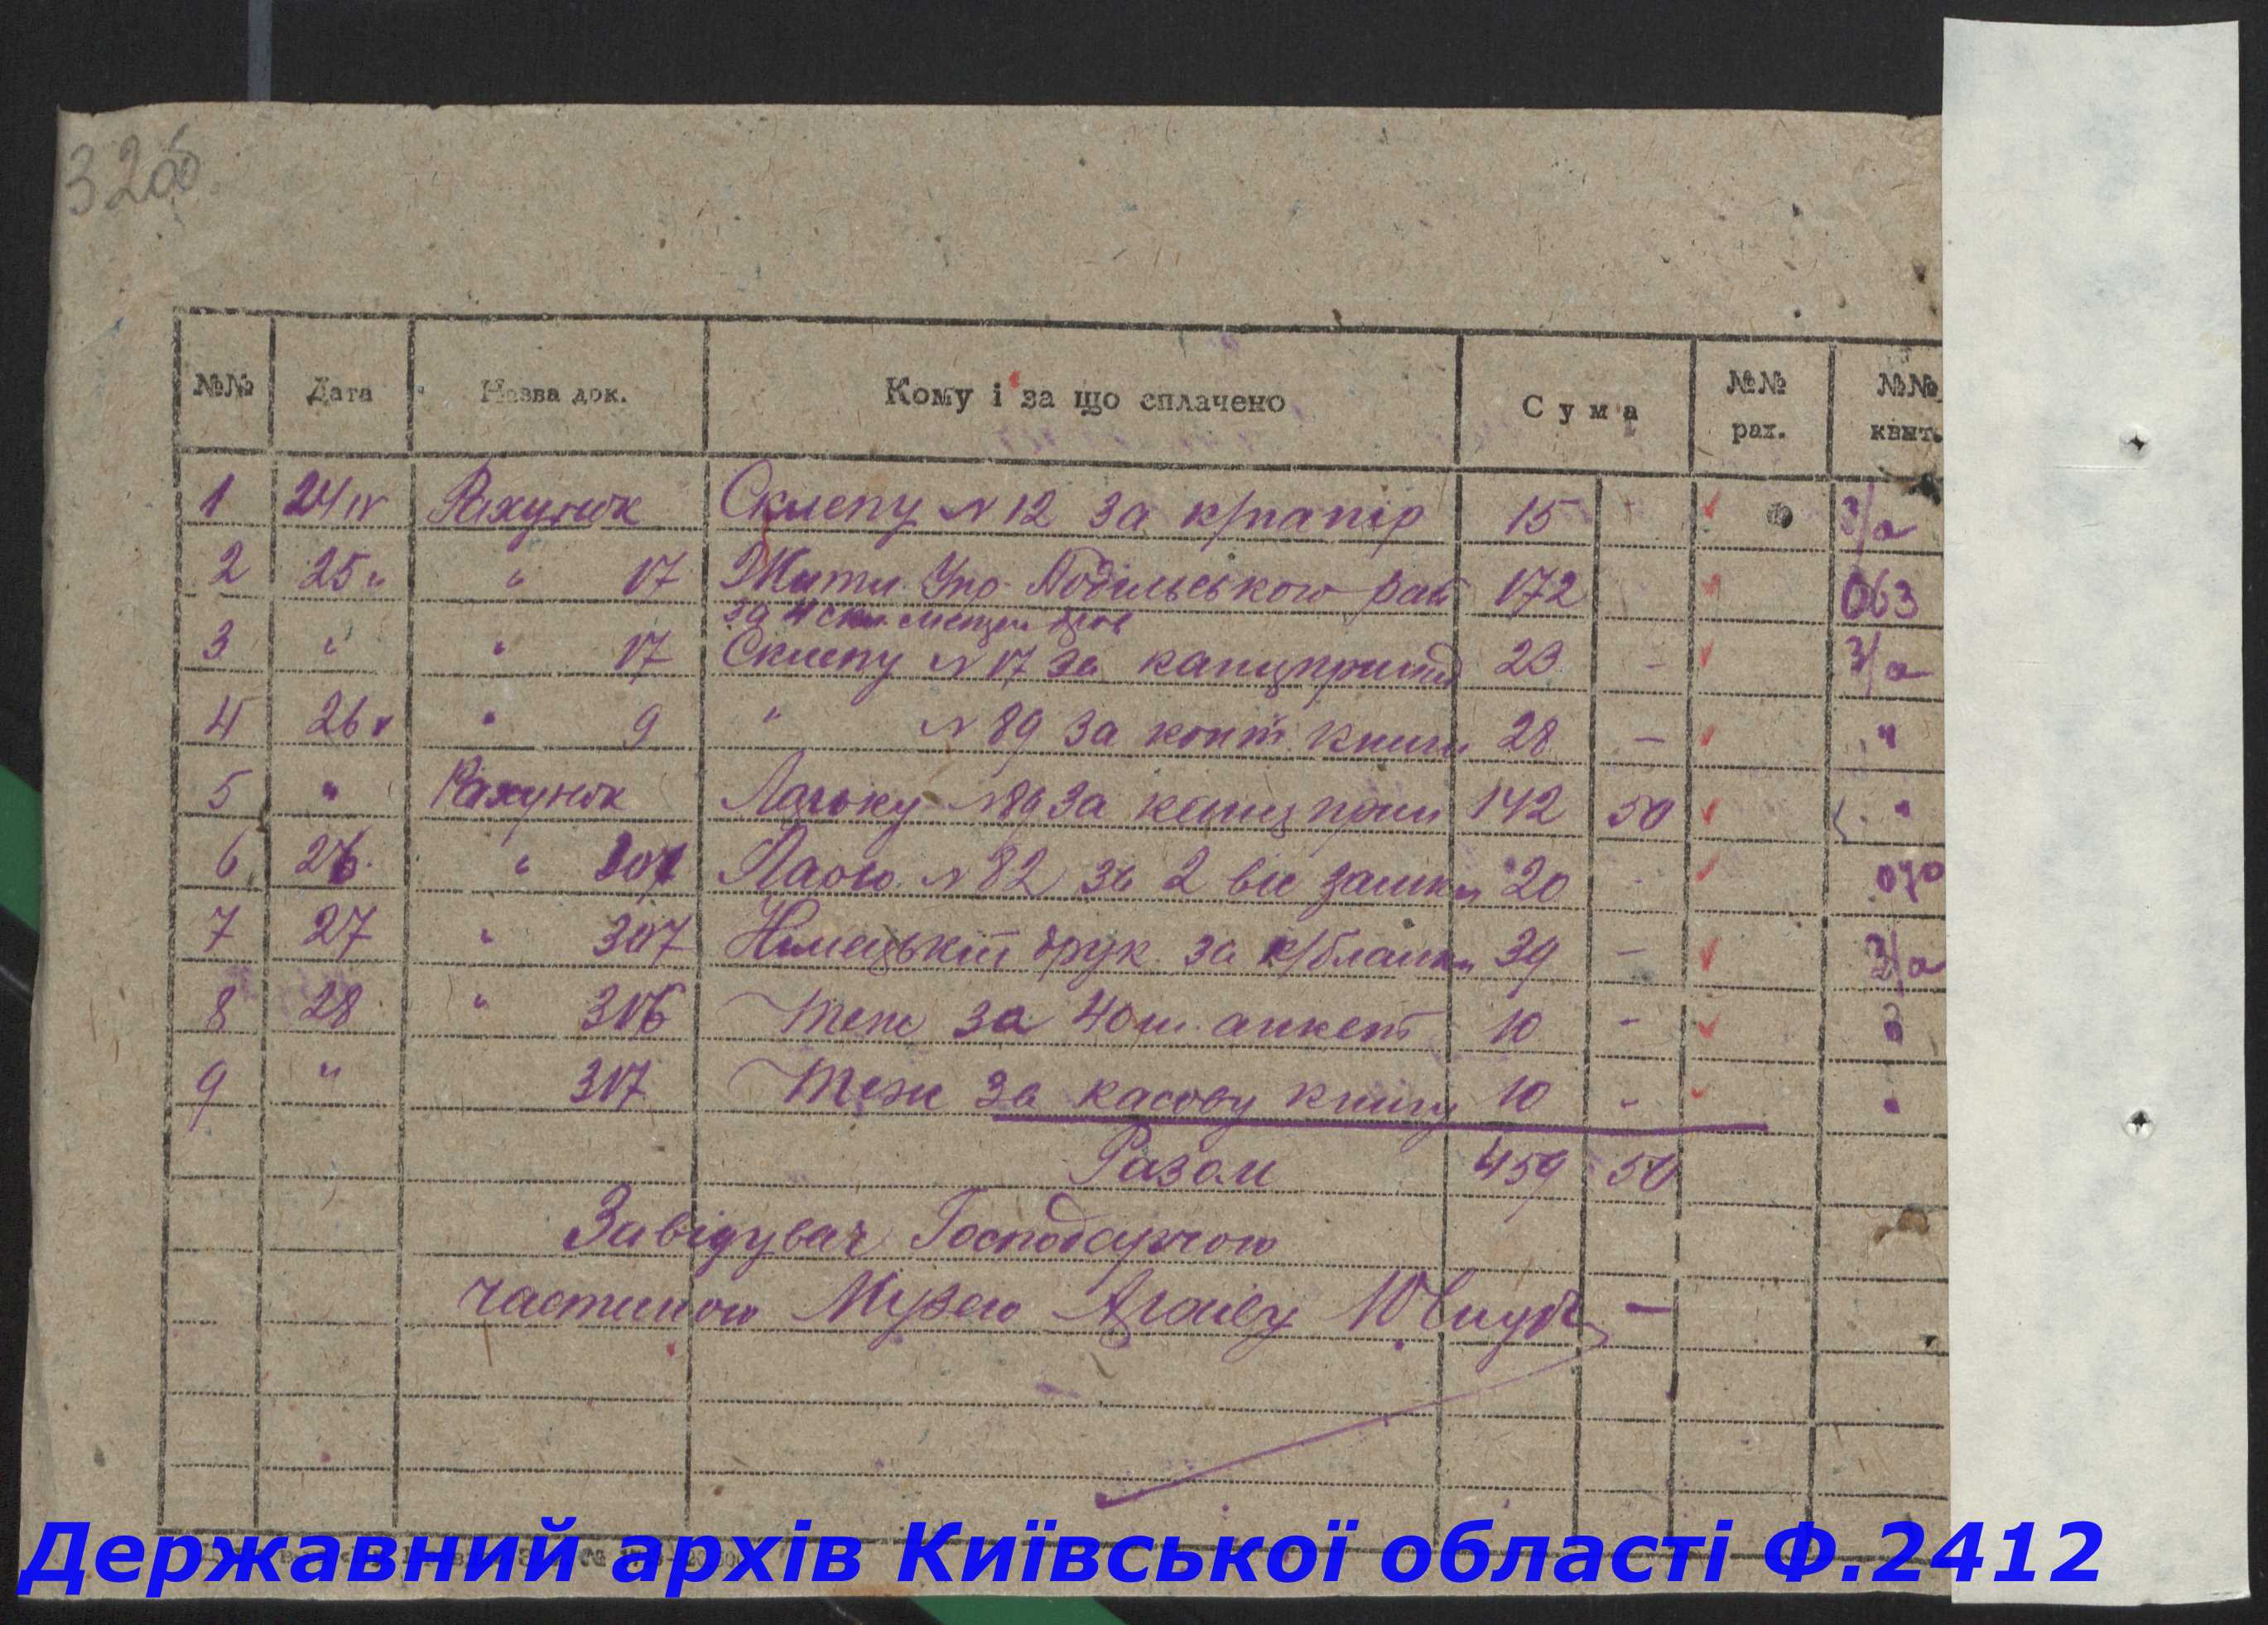 32об
№№ Дата Назва док. Кому і за що сплачено Сума №№ рах. №№ квит.
1 24/IV Рахунок Склепу N 12 за к/папір 15 - з/а
2 25 " " 17 Житл. Упр. Подільського рай 172 063
за
3 " " 17 Склепу N 17 за канцприлад 23 - з/а
4 26 " " 9 " N 89 за конт. книги 28 - "
5 " Рахунок N 89 за канц прил 142 50 "
6 26 " 207 N 82 за 2 вис замки 20 - 070
7 27 " 307 Німецькій друк. за к/бланки 39 - з/а
8 28 " 306 Теж за 40 ш. анкет 10 - "
9 " 307 Теж за касову книгу 10 - "
Разом 459 50
Завідувач Господарчою
частиною Музею Архіву
Державний архів Київської області Ф.2412